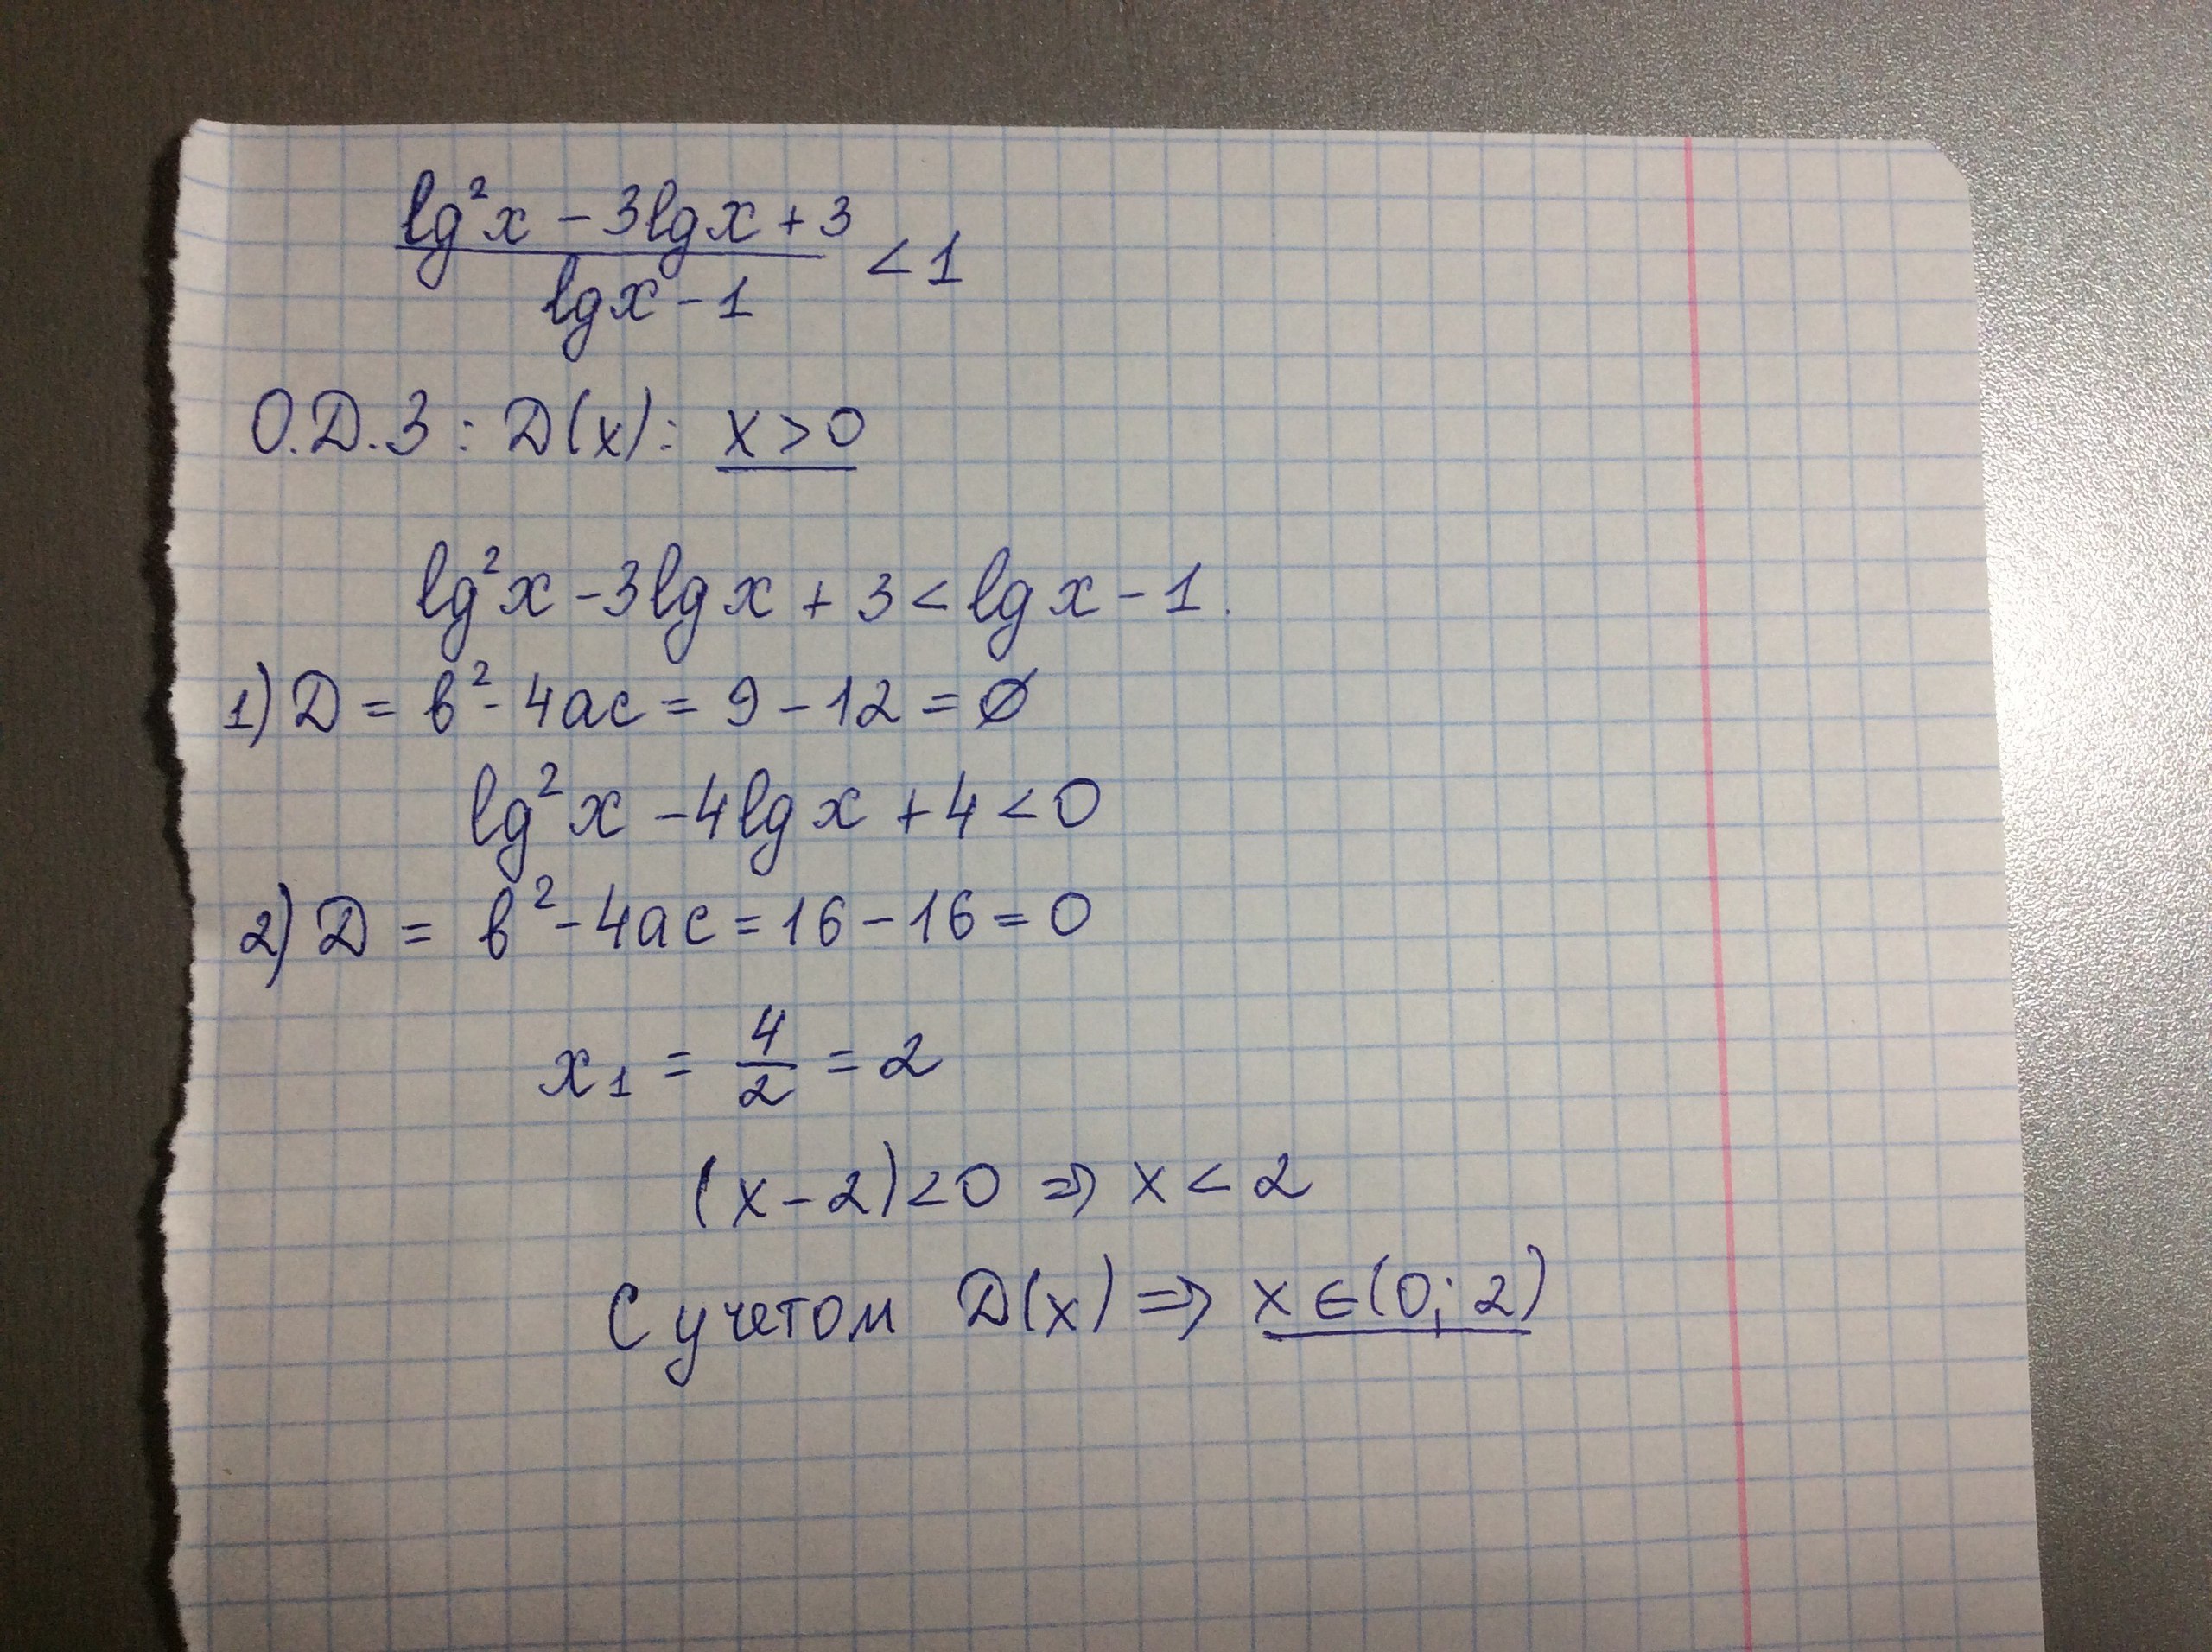 lg²x - 3lgx + 3
lgx - 1
< 1
О.D.З : D(x) : x > 0
lg²x - 3lgx + 3 < lgx - 1.
1) D = b² - 4ac = 9 - 12 = ∅
lg²x - 4lgx + 4 < 0
2) D = b² - 4ac = 16 - 16 = 0
x₁ = 4/2 = 2
(x - 2) < 0 ⇒ x < 2
С учетом D(x) ⇒ x ∈ (0; 2)